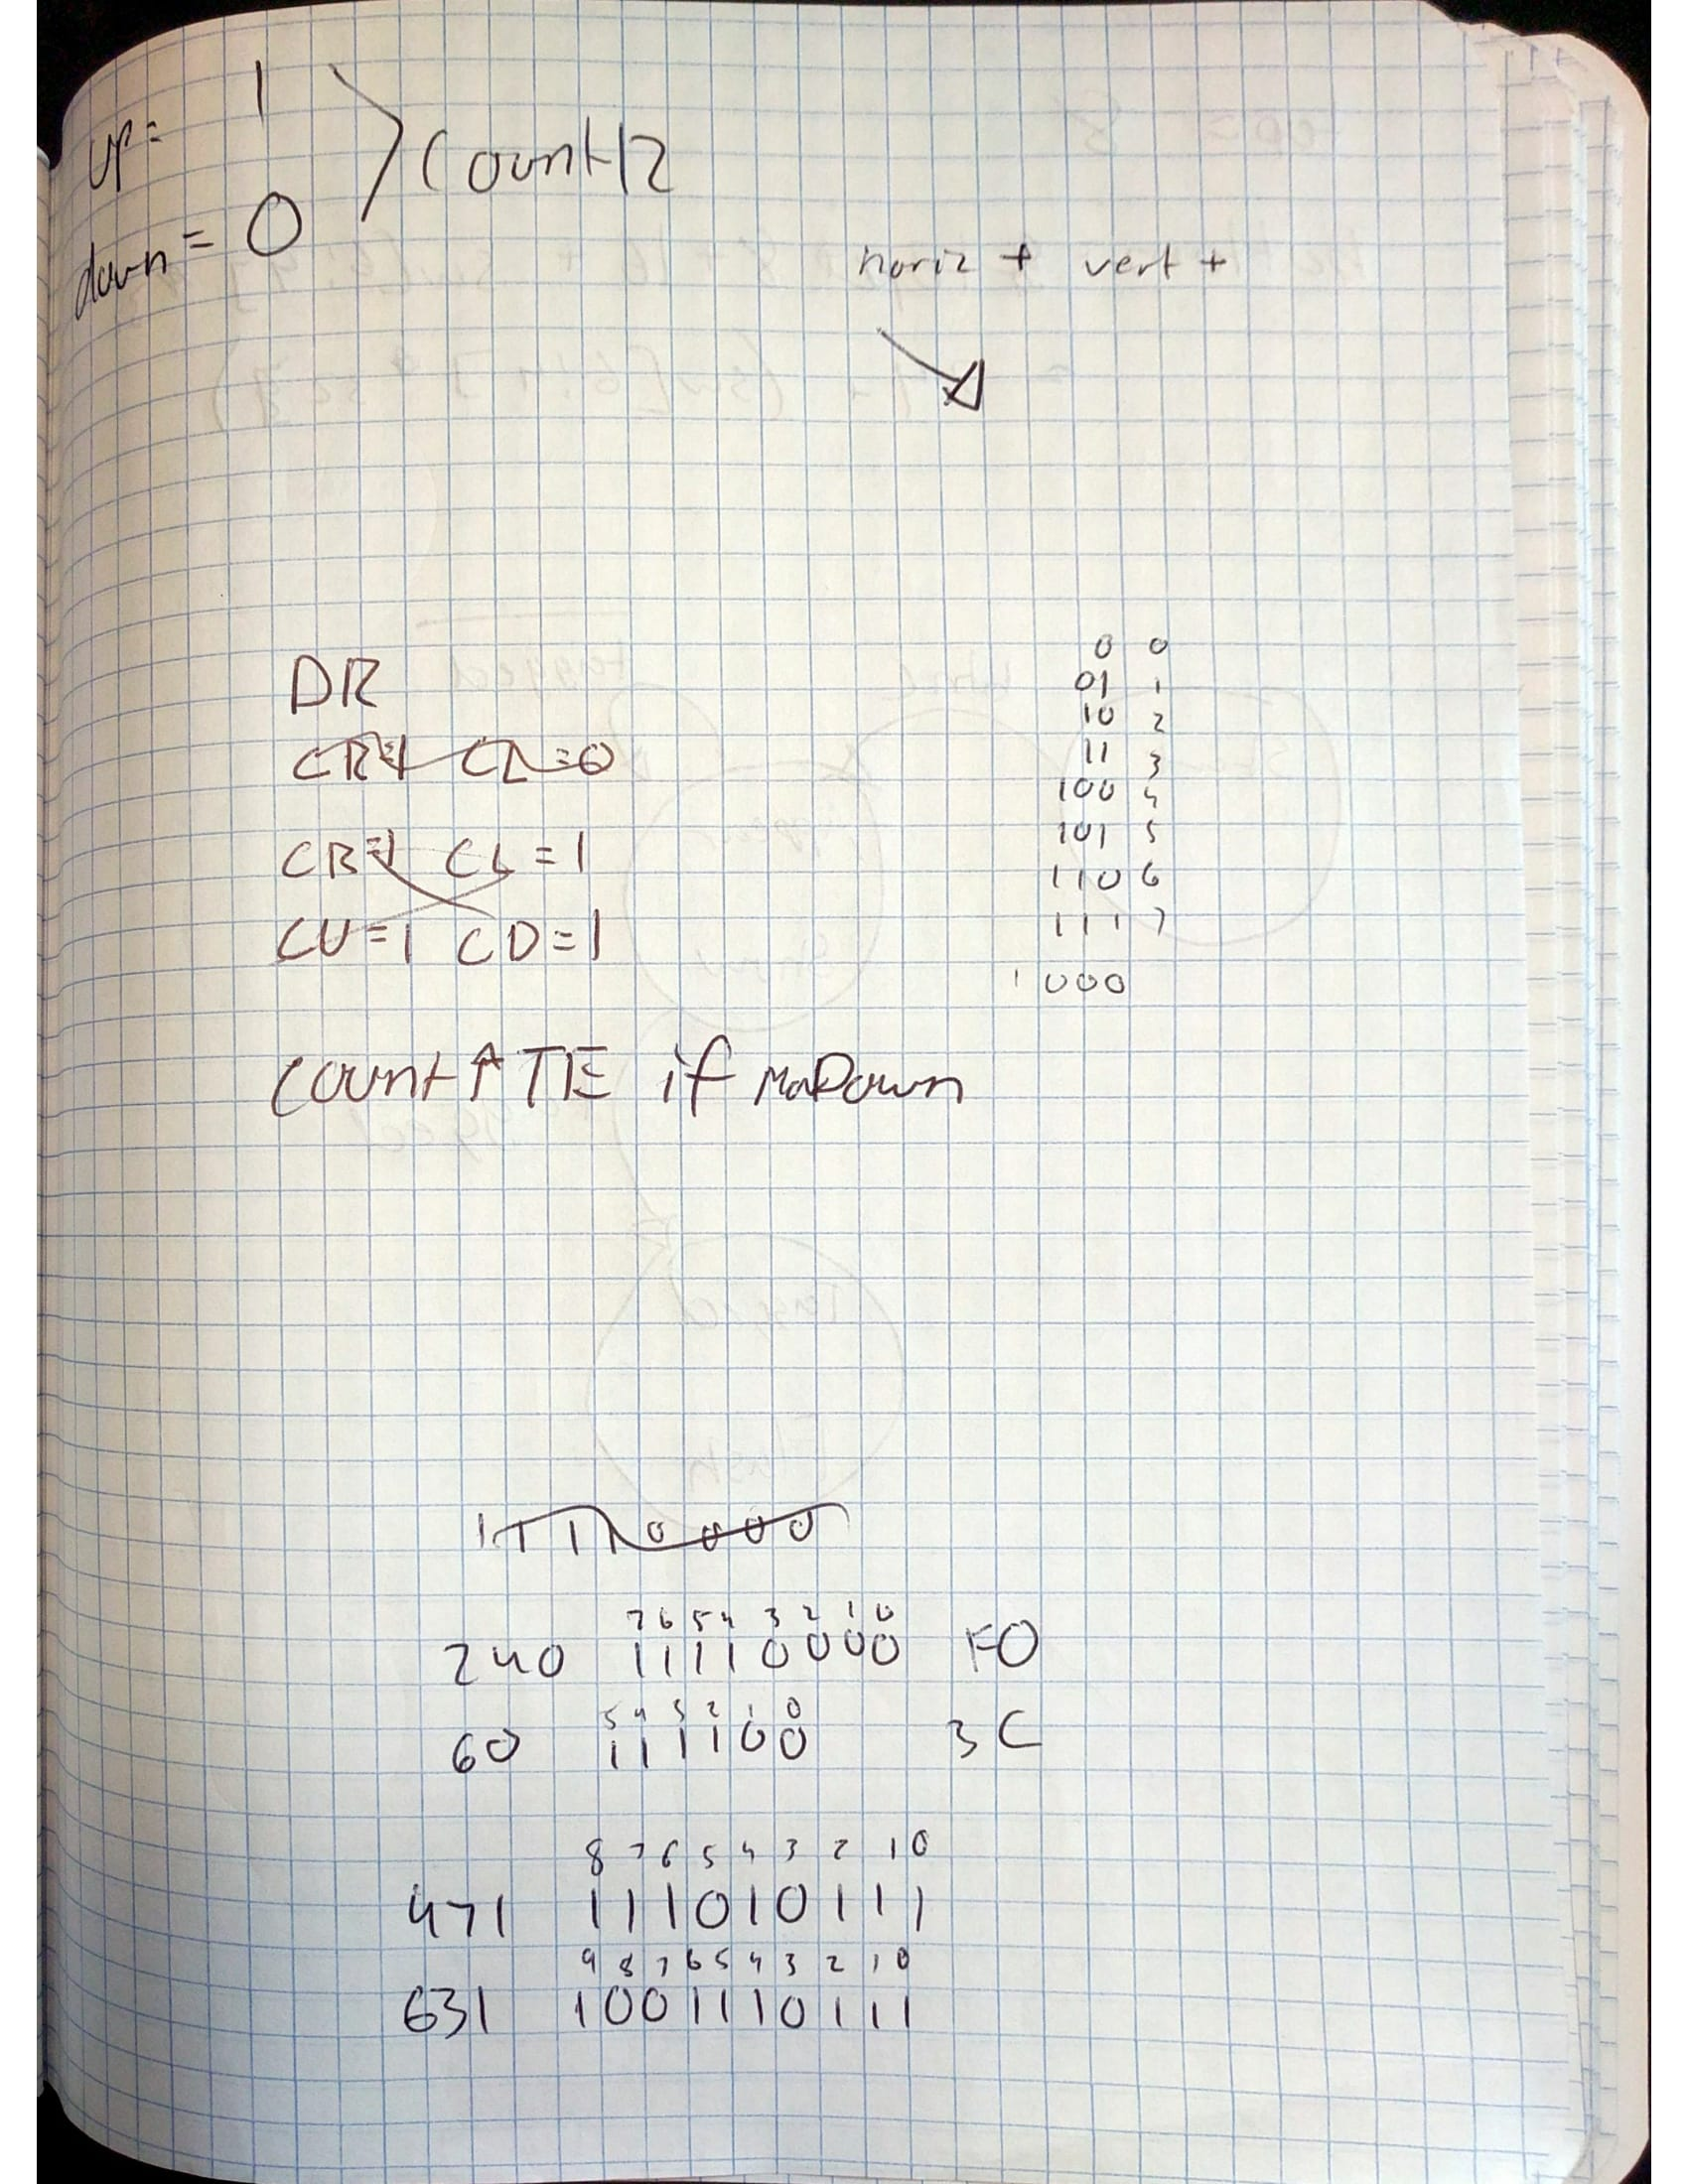 up = 1
down = 0
Count/2
horiz + vert +
DR
CR=1 CL=0
CR=1 CL=1
CU=1 CD=1
0 0
01 1
10 2
11 3
100 4
101 5
110 6
111 7
1000
Count↑ TE if moDown
11110000
7 6 5 4 3 2 1 0
240 11110000 F0
5 4 3 2 1 0
60 111100 3C
8 7 6 5 4 3 2 1 0
471 111010111
9 8 7 6 5 4 3 2 1 0
631 1001110111